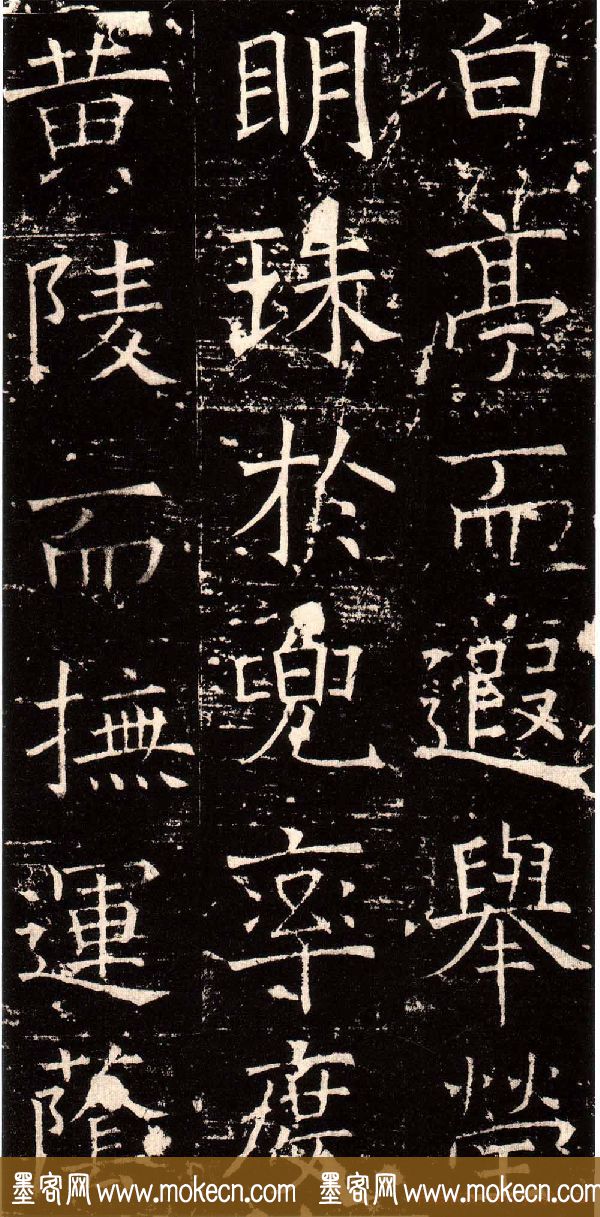 白亭而遐舉瑩
眀珠於兜率度
黄陵而撫運蔭
墨客网 www.mokecn.com 墨客网 www.mokecn.com